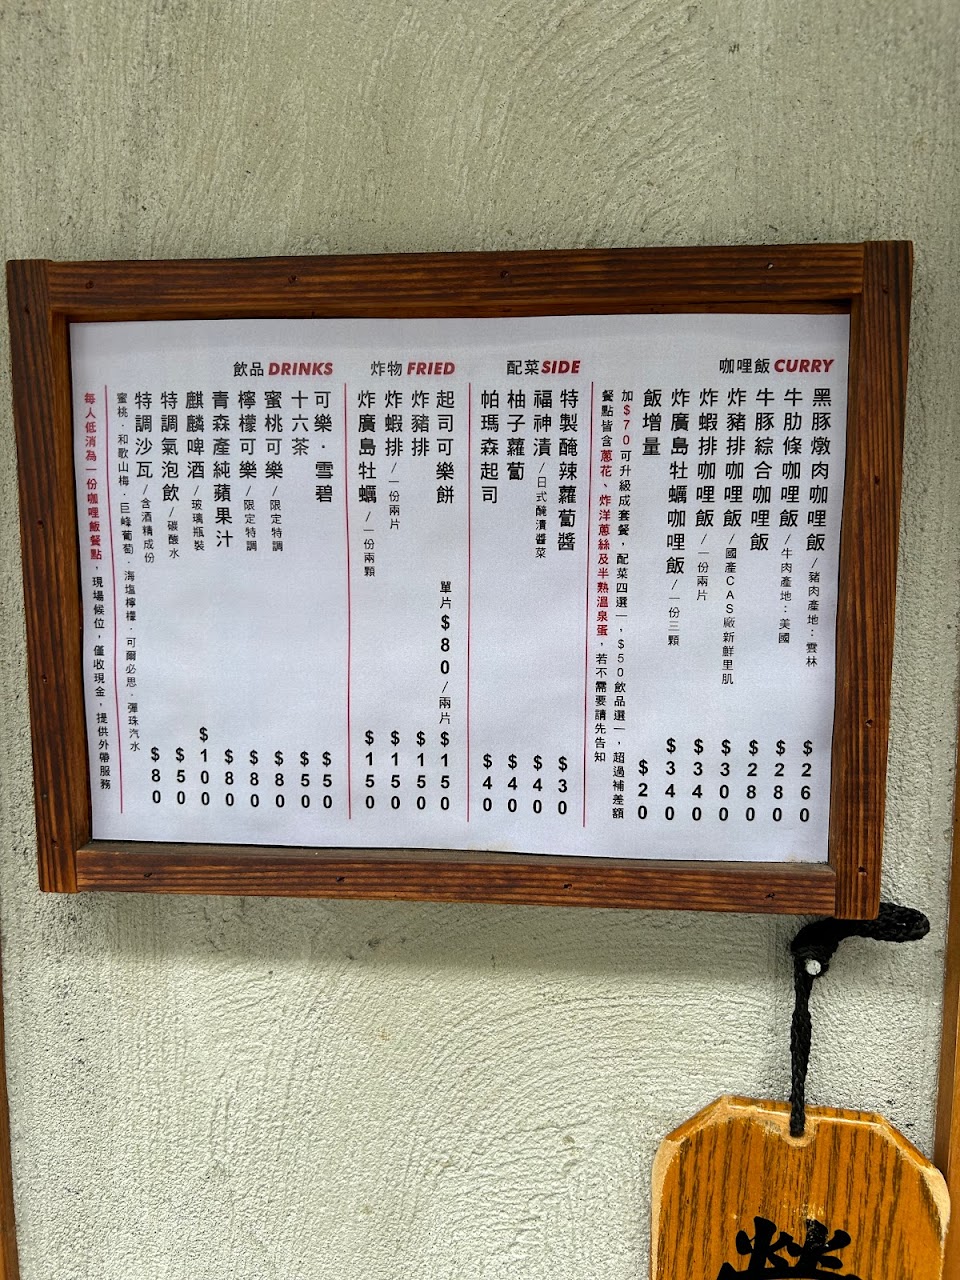 咖哩飯 CURRY
黑豚燉肉咖哩飯/豬肉產地：雲林 $260
牛肋條咖哩飯/牛肉產地：美國 $280
牛豚綜合咖哩飯 $280
炸豬排咖哩飯/國產CAS廠新鮮里肌 $300
炸蝦排咖哩飯/一份兩片 $340
炸廣島牡蠣咖哩飯/一份三顆 $340
飯增量 $20
加$70可升級成套餐，配菜四選一，$50飲品選一，超過補差額
餐點皆含蔥花、炸洋蔥絲及半熟溫泉蛋，若不需要請先告知
配菜 SIDE
特製醃辣蘿蔔醬 $30
福神漬/日式醃漬醬菜 $40
柚子蘿蔔 $40
帕瑪森起司 $40
炸物 FRIED
起司可樂餅 單片$80/兩片$150
炸豬排 $150
炸蝦排/一份兩片 $150
炸廣島牡蠣/一份兩顆 $150
飲品 DRINKS
可樂·雪碧 $50
十六茶 $50
蜜桃可樂/限定特調 $80
檸檬可樂/限定特調 $80
青森產純蘋果汁 $80
麒麟啤酒/玻璃瓶裝 $100
特調氣泡飲/碳酸水 $50
特調沙瓦/含酒精成份 $80
蜜桃·和歌山梅·巨峰葡萄·海塩檸檬·可爾必思·彈珠汽水
每人低消為一份咖哩飯餐點，現場候位，僅收現金，提供外帶服務